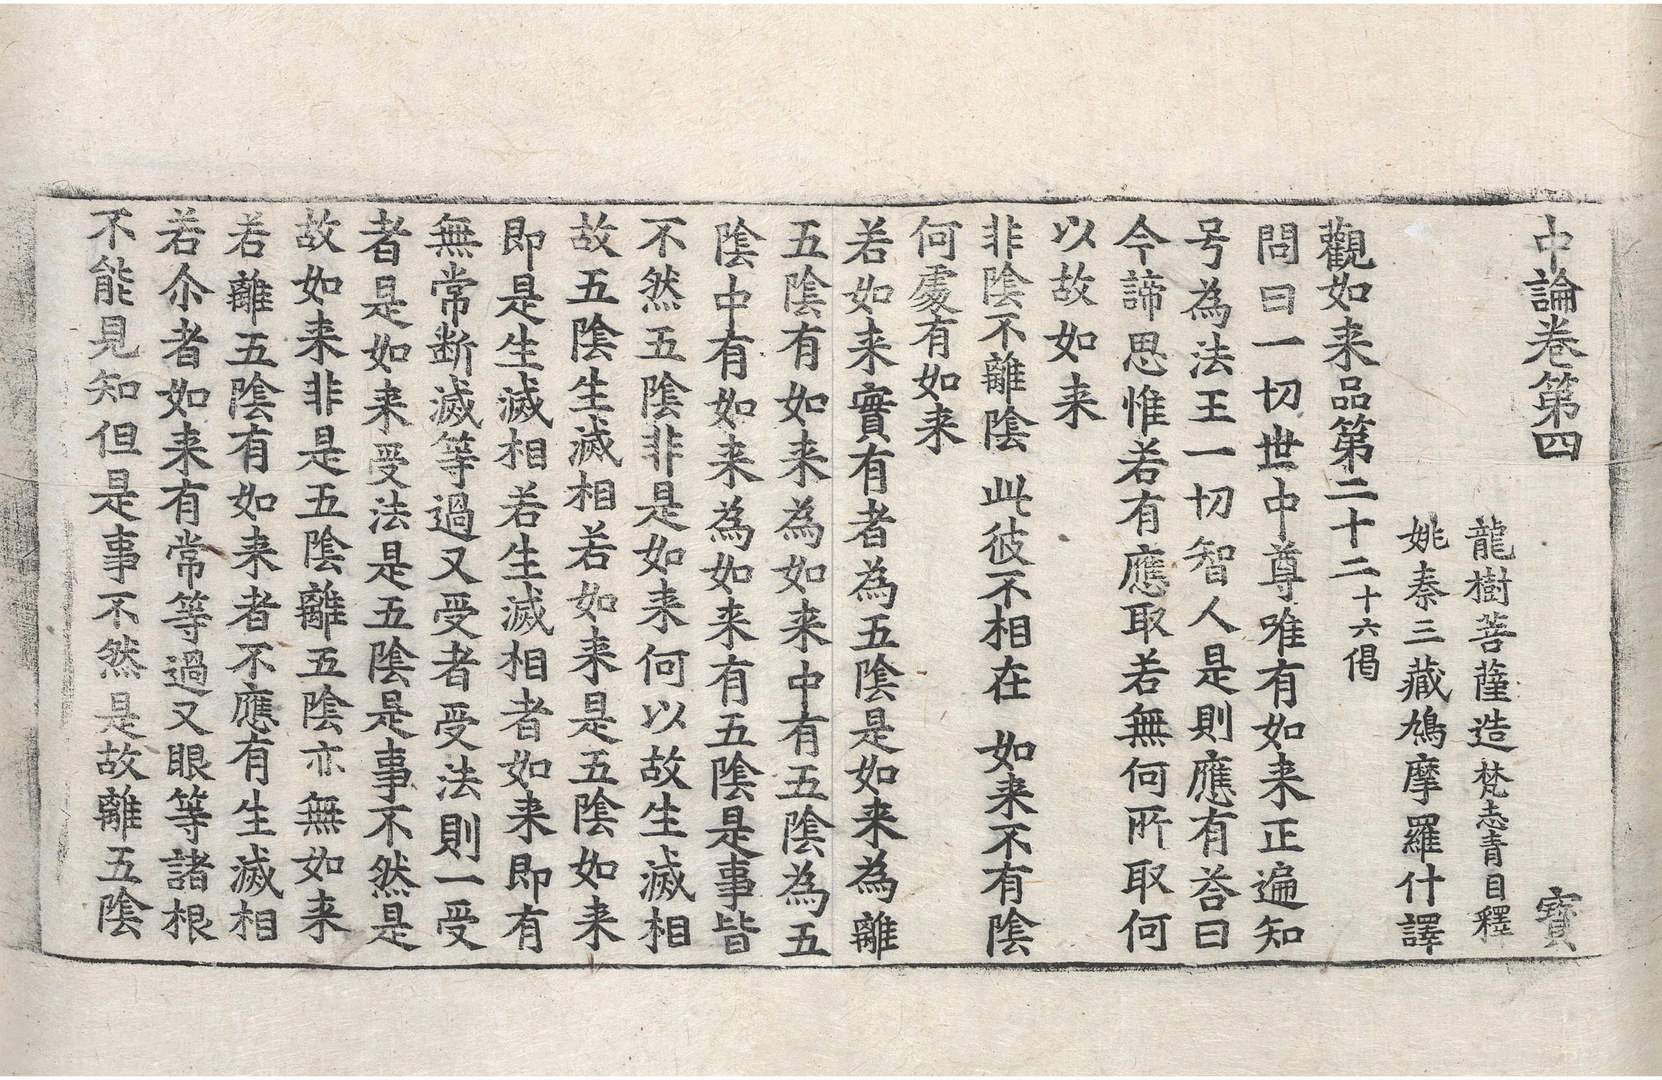 中論卷第四　寳
龍樹菩薩造梵志青目釋
姚秦三藏鳩摩羅什譯
觀如来品第二十二二十六偈
問曰一切世中尊唯有如来正遍知
号為法王一切智人是則應有荅曰
今諦思惟若有應取若無何所取何
以故如来
非陰不離陰　此彼不相在　如来不有陰
何處有如来
若如来實有者為五陰是如来為離
五陰有如来為如来中有五陰為五
陰中有如来為如来有五陰是事皆
不然五陰非是如来何以故生滅相
故五陰生滅相若如来是五陰如来
即是生滅相若生滅相者如来即有
無常断滅等過又受者受法則一受
者是如来受法是五陰是事不然是
故如来非是五陰離五陰亦無如来
若離五陰有如来者不應有生滅相
若尒者如来有常等過又眼等諸根
不能見知但是事不然是故離五陰